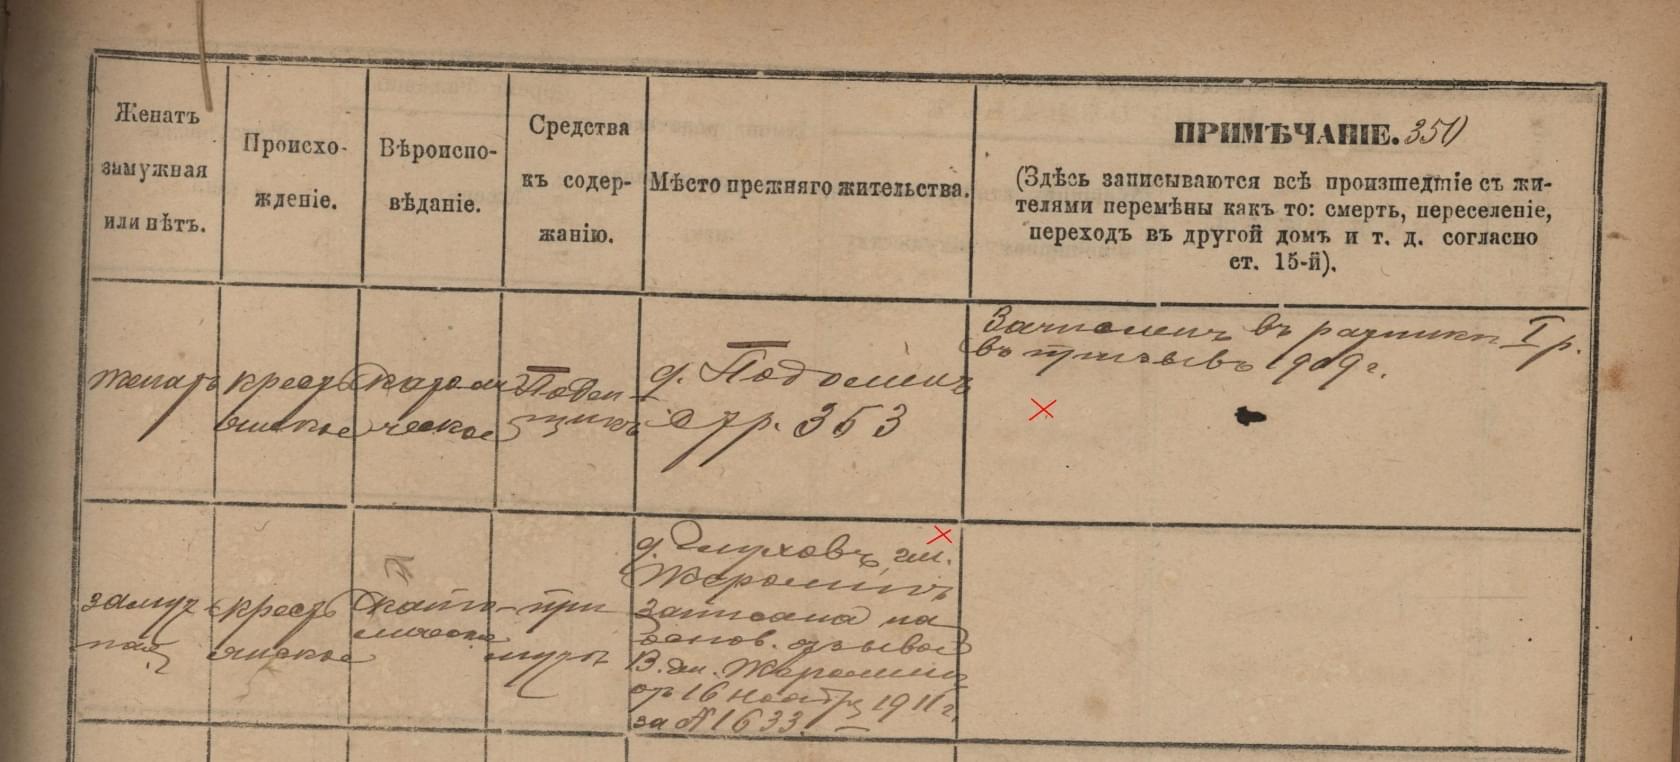 Женатъ
замужная
или нѣтъ.
Происхо-
жденіе.
Вѣроиспо-
вѣданіе.
Средства
къ содер-
жанію.
Мѣсто прежняго жительства.
ПРИМѢЧАНІЕ. 350
(Здѣсь записываются всѣ произшедшіе съ жи-
телями перемѣны какъ то: смерть, переселеніе,
переходъ въ другой домъ и т. д. согласно
ст. 15-й).
женатъ
кресть
янское
католи
ческое
Поден-
щикъ
д. Подолинъ
стр. 353
Зачисленъ въ ратники I р.
въ призывъ 1909 г.
замуж-
ная
кресть
янское
като-
лическое
при
мужѣ
д. Глуховъ, гм.
Жеромин
записана на
основ. отзыва
В. гм. Жеромин
отъ 16 ноября 1911 г.
за № 1633.